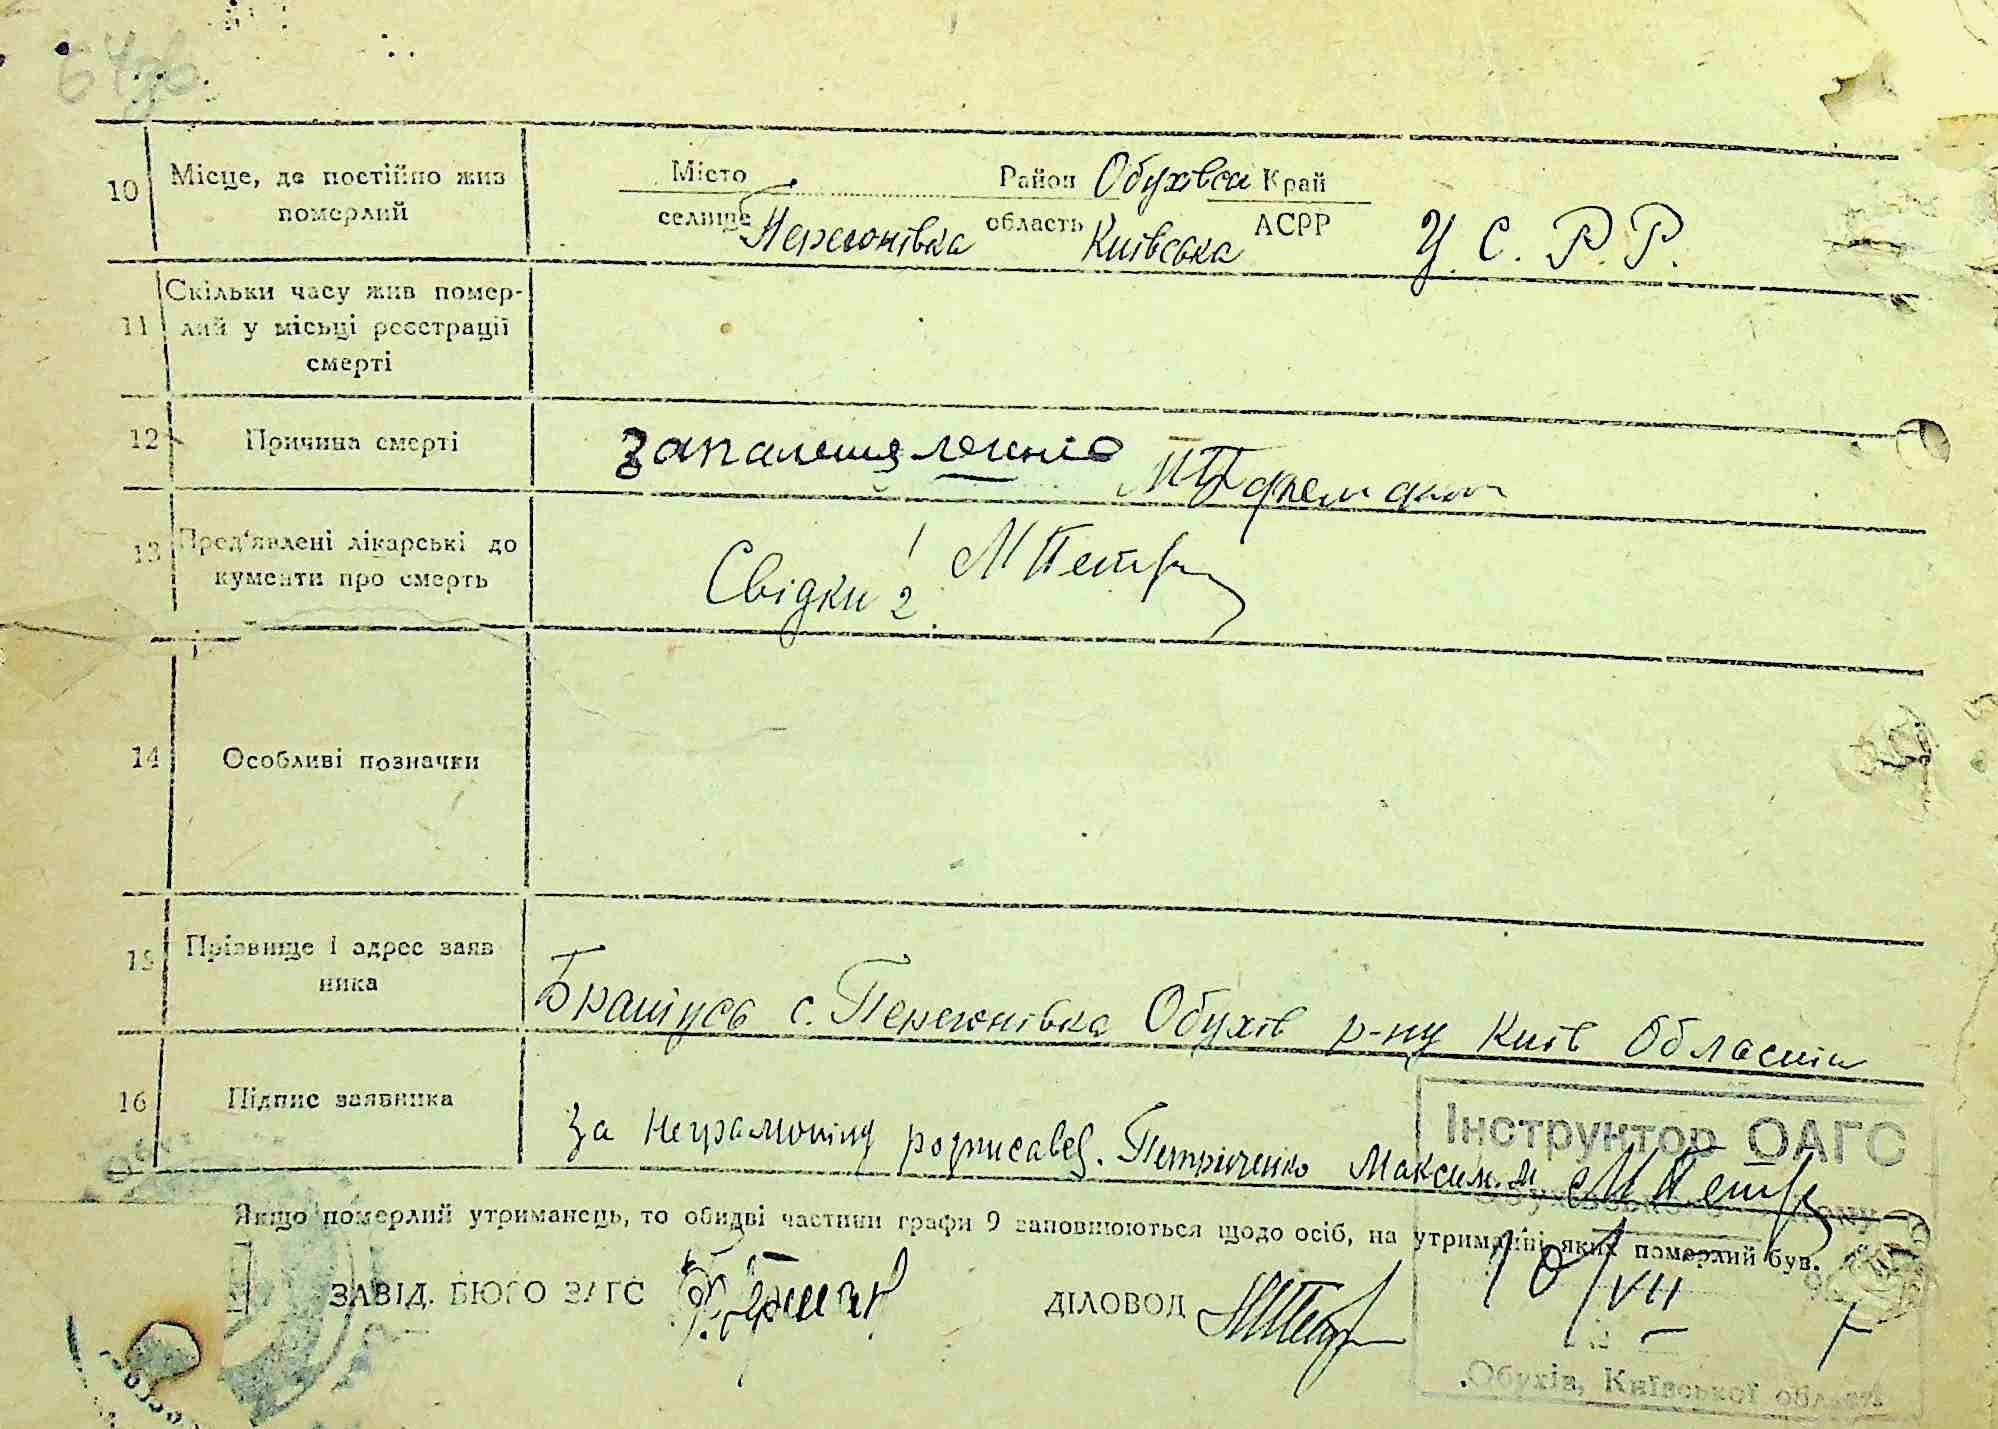 10 Місце, де постійно жив
померлий
Місто Район Обухівськ Край
селище Перегонівка область Київська АСРР У. С. Р. Р.
11 Скільки часу жив помер-
лий у місьці реєстрації
смерті
12 Причина смерті
запалення легенів
13 Пред'явлені лікарські до
кументи про смерть
Свідки 1 МПетр
2.
14 Особливі позначки
15 Прізвище і адрес заяв
ника
Братусь с. Перегонівка Обухів р-ну Київ Області
16 Підпис заявника
За неграмотну розписавсь. Петриченко Максим. М МПетр
Якщо померлий утриманець, то обидві частини графи 9 заповнюються щодо осіб, на утриманні яких померлий був.
ЗАВІД. БЮРО ЗАГС
ДІЛОВОД МПетр
Інструктор ОАГС
10/VII
Обухів, Київської області